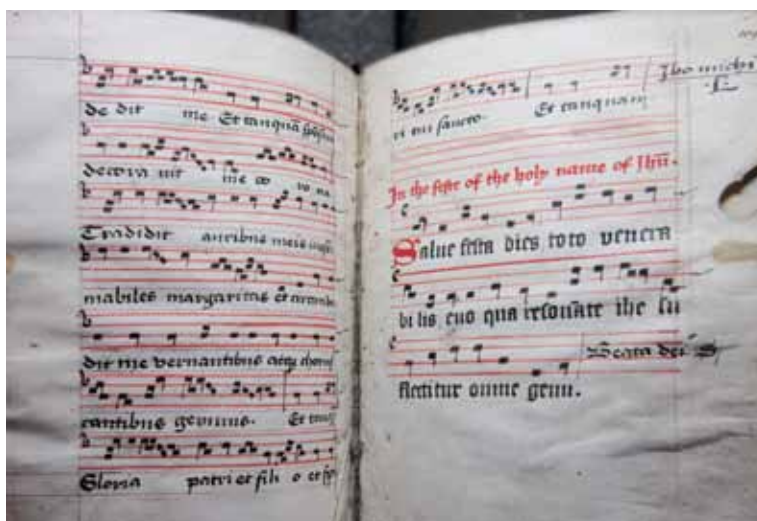 de dit me Et tanquā sponsam
decora vit me co ro na
Tradidit auribus meis inesti
mabiles margaritas et circumde
dit me vernantibus atqꝫ chorus
cantibus gemmis. Et tanqꝫ
Gloria patri et fili o et spi
ri tui sancto. Et tanquam
In the feste of the holy name of Jhū.
Salue festa dies toto venera
bi lis euo qua resonāte ihe su
flectitur omne genu.
Beata dei